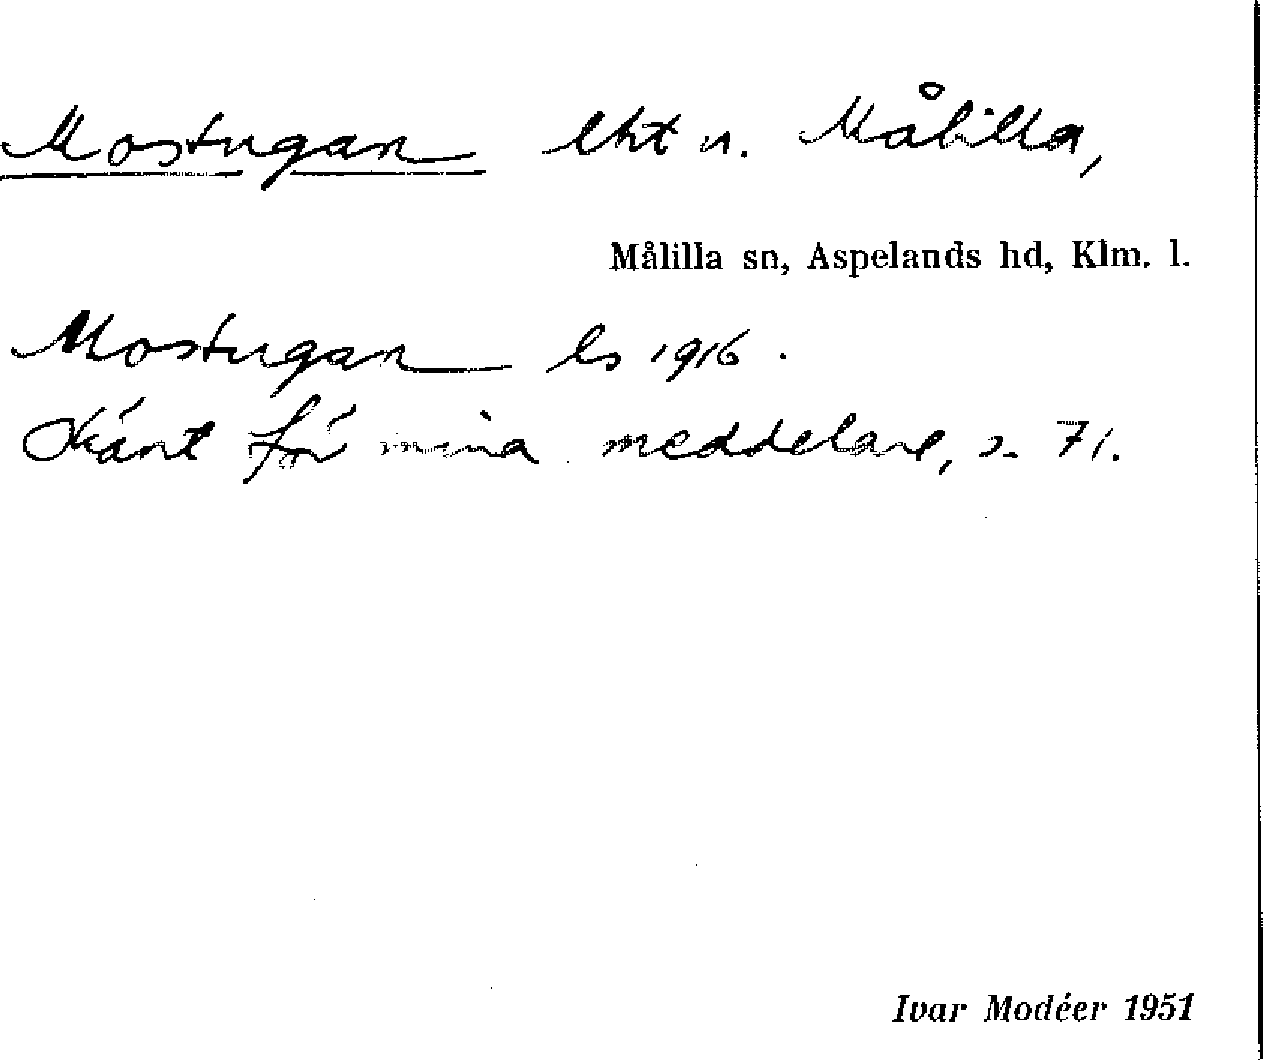 Mostugan lht u. Målilla,
Målilla sn, Aspelands hd, Klm. l.
Mostugan ls 1916.
Känt för mina meddelare, s. 71.
Ivar Modéer 1951